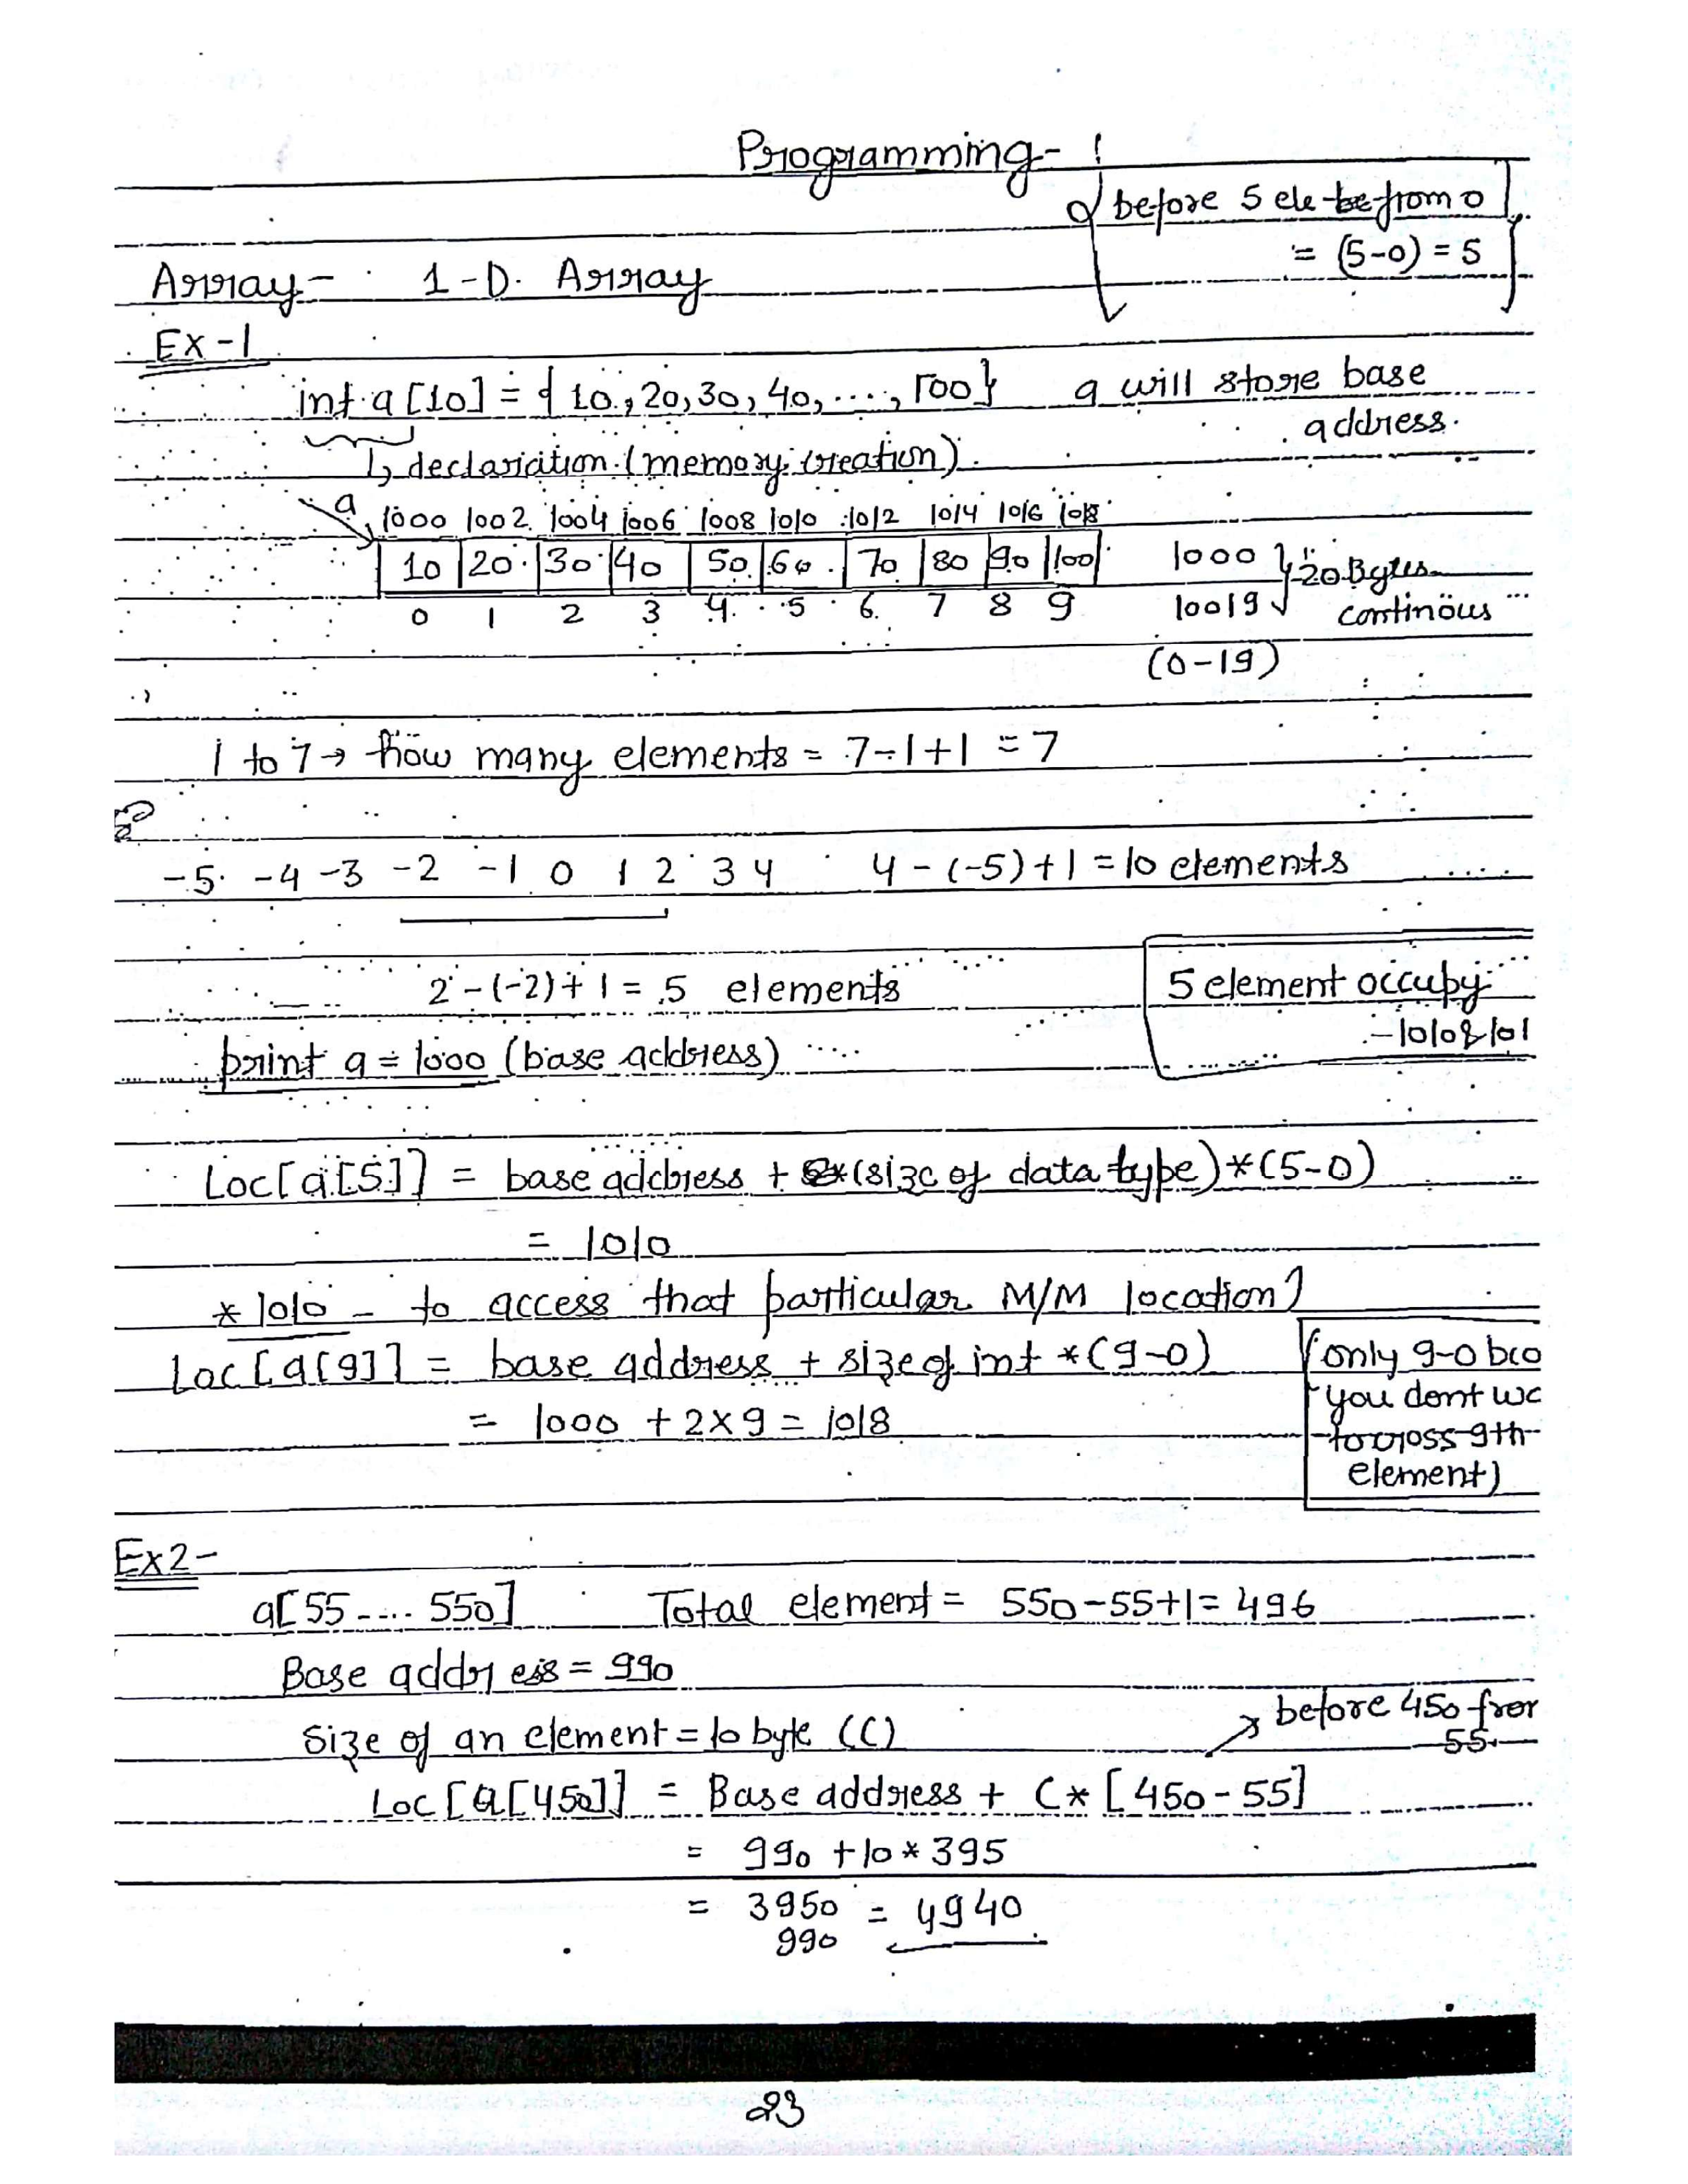 Programming-1
before 5 ele be from 0
= (5-0) = 5
Array- 1-D. Array
Ex-1
int a[10] = { 10, 20, 30, 40, ..., 100} a will store base
address.
↳ declaration (memory creation).
a
1000 1002 1004 1006 1008 1010 1012 1014 1016 1018
10 20 30 40 50 60 70 80 90 100
0 1 2 3 4 5 6 7 8 9
1000
10019
20 Bytes
continous
(0-19)
1 to 7 → how many elements = 7-1+1 = 7
-5 -4 -3 -2 -1 0 1 2 3 4 4-(-5)+1 = 10 elements
2-(-2)+1 = 5 elements
5 element occupy
- 1010 & 101
print a = 1000 (base address)
Loc[a[5]] = base address + (size of data type)*(5-0)
= 1010
*1010 - to access that particular M/M location)
Loc[a[9]] = base address + size of int *(9-0)
= 1000 + 2×9 = 1018
(only 9-0 bco
you dont wa
to cross 9th
element)
Ex2-
a[55 .... 550] Total element = 550-55+1 = 496
Base address = 990
Size of an element = 10 byte (C)
before 450 from
55
Loc[a[450]] = Base address + C* [450-55]
= 990 + 10 * 395
= 3950 = 4940
990
23